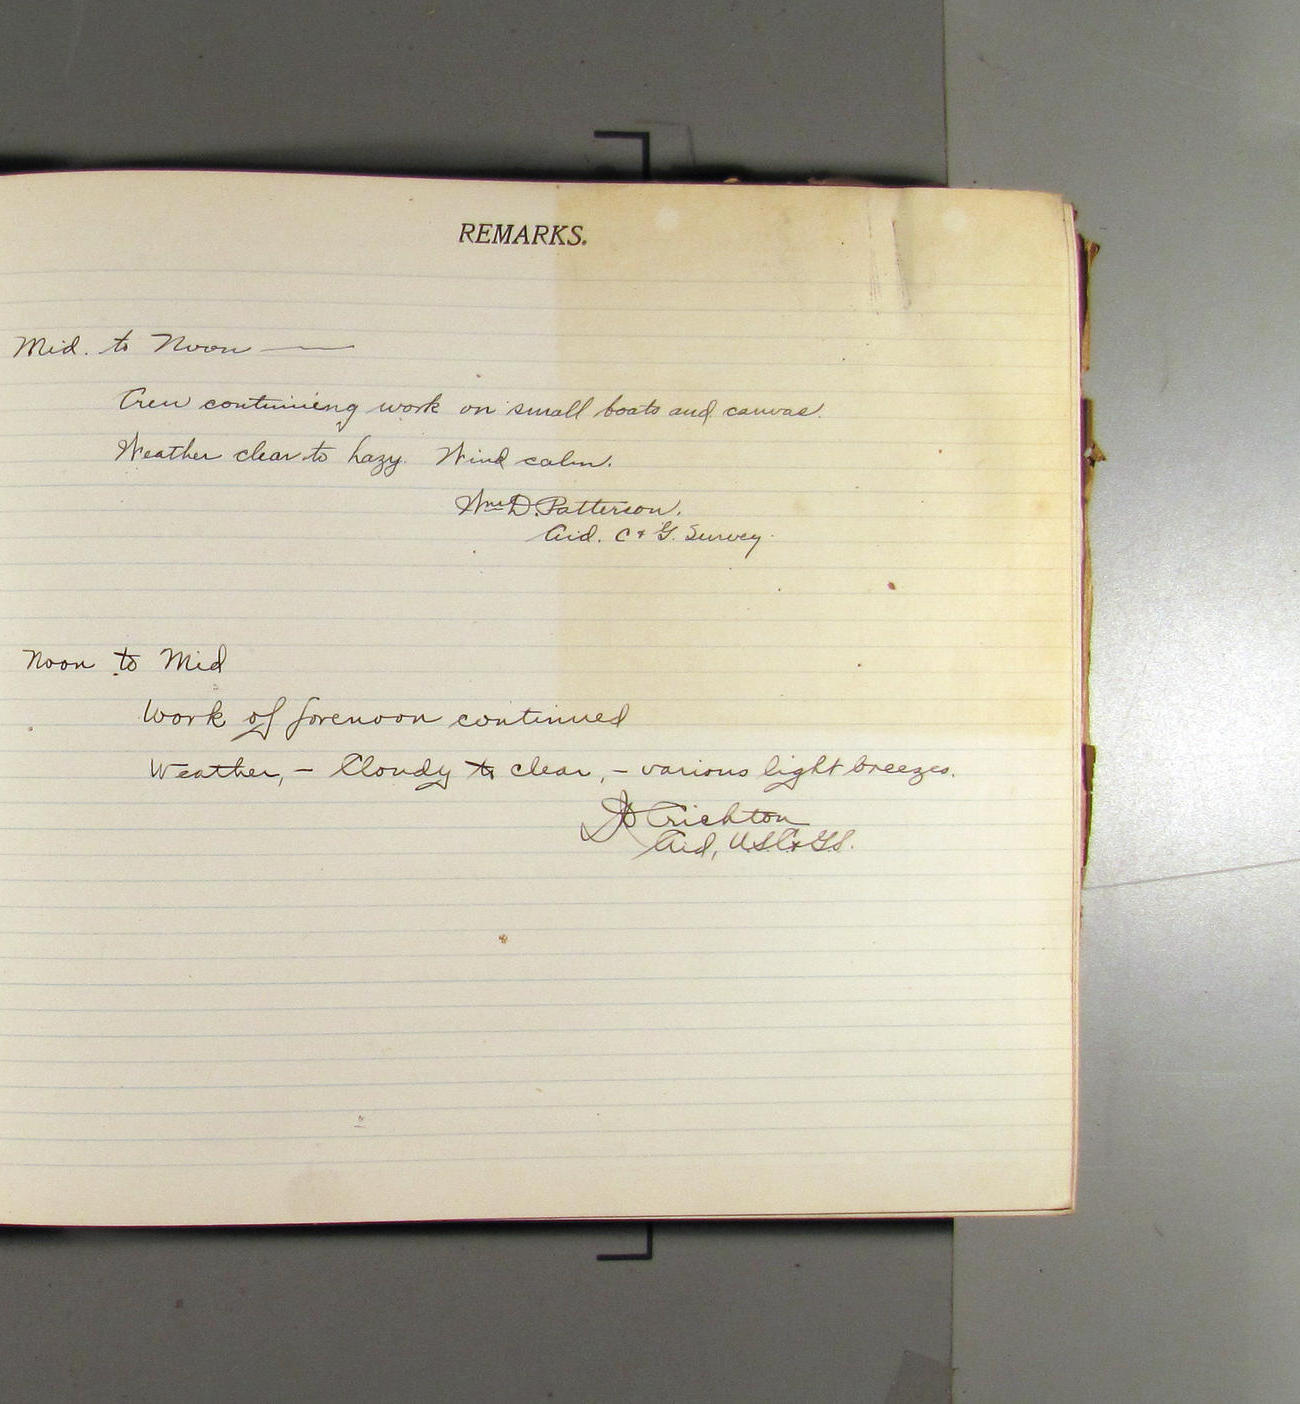 REMARKS.
Mid. to Noon —
Crew continuing work on small boats and canvas.
Weather clear to hazy. Wind calm.
Wm D. Patterson.
Aid. C & G. Survey.
Noon to Mid
Work of forenoon continued
Weather, – Cloudy to clear, – various light breezes.
Crichton
Aid, U.S.C.&G.S.